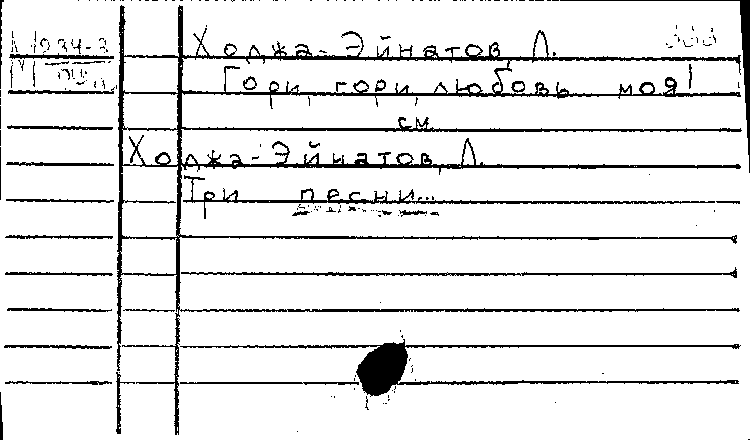 Ходжа-Эйнатов, Л.
Гори, гори, любовь моя!
см.
Ходжа-Эйнатов, Л.
Три песни...